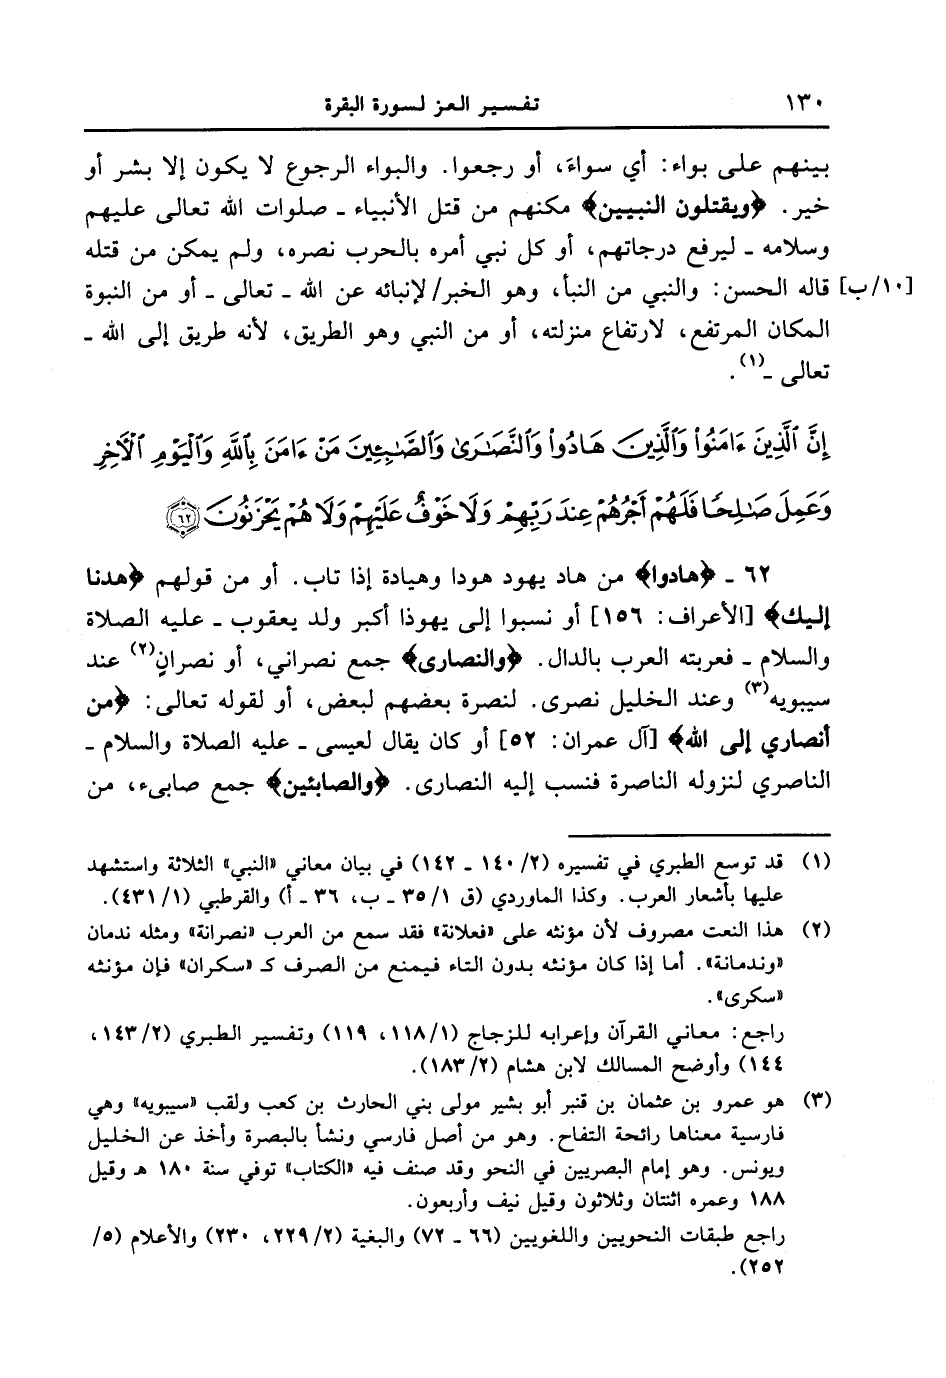 ١٣٠ تفسير العز لسورة البقرة
بينهم على بواء: أي سواءَ، أو رجعوا. والبواء الرجوع لا يكون إلا بشر أو
خير. ﴿ويقتلون النبيين﴾ مكنهم من قتل الأنبياء ـ صلوات الله تعالى عليهم
وسلامه ـ ليرفع درجاتهم، أو كل نبي أمره بالحرب نصره، ولم يمكن من قتله
[١٠/ب] قاله الحسن: والنبي من النبأ، وهو الخبر/ لإنبائه عن الله ـ تعالى ـ أو من النبوة
المكان المرتفع، لارتفاع منزلته، أو من النبي وهو الطريق، لأنه طريق إلى الله ـ
تعالى ـ(١).
إِنَّ ٱلَّذِينَ ءَامَنُوا۟ وَٱلَّذِينَ هَادُوا۟ وَٱلنَّصَٰرَىٰ وَٱلصَّٰبِـِٔينَ مَنْ ءَامَنَ بِٱللَّهِ وَٱلْيَوْمِ ٱلْـَٔاخِرِ
وَعَمِلَ صَٰلِحًا فَلَهُمْ أَجْرُهُمْ عِندَ رَبِّهِمْ وَلَا خَوْفٌ عَلَيْهِمْ وَلَا هُمْ يَحْزَنُونَ ٦٢
٦٢ ـ ﴿هادوا﴾ من هاد يهود هودا وهيادة إذا تاب. أو من قولهم ﴿هدنا
إليك﴾ [الأعراف: ١٥٦] أو نسبوا إلى يهوذا أكبر ولد يعقوب ـ عليه الصلاة
والسلام ـ فعربته العرب بالدال. ﴿والنصارى﴾ جمع نصراني، أو نصرانٍ(٢) عند
سيبويه(٣) وعند الخليل نصرى. لنصرة بعضهم لبعض، أو لقوله تعالى: ﴿من
أنصاري إلى الله﴾ [آل عمران: ٥٢] أو كان يقال لعيسى ـ عليه الصلاة والسلام ـ
الناصري لنزوله الناصرة فنسب إليه النصارى. ﴿والصابئين﴾ جمع صابىء، من
(١) قد توسع الطبري في تفسيره (٢/ ١٤٠ ـ ١٤٢) في بيان معاني «النبي» الثلاثة واستشهد
عليها بأشعار العرب. وكذا الماوردي (ق ١/ ٣٥ ـ ب، ٣٦ ـ أ) والقرطبي (١/ ٤٣١).
(٢) هذا النعت مصروف لأن مؤنثه على «فعلانة» فقد سمع من العرب «نصرانة» ومثله ندمان
«وندمانة». أما إذا كان مؤنثه بدون التاء فيمنع من الصرف كـ «سكران» فإن مؤنثه
«سكرى».
راجع: معاني القرآن وإعرابه للزجاج (١/ ١١٨، ١١٩) وتفسير الطبري (٢/ ١٤٣،
١٤٤) وأوضح المسالك لابن هشام (٢/ ١٨٣).
(٣) هو عمرو بن عثمان بن قنبر أبو بشير مولى بني الحارث بن كعب ولقب «سيبويه» وهي
فارسية معناها رائحة التفاح. وهو من أصل فارسي ونشأ بالبصرة وأخذ عن الخليل
ويونس. وهو إمام البصريين في النحو وقد صنف فيه «الكتاب» توفي سنة ١٨٠ هـ وقيل
١٨٨ وعمره اثنتان وثلاثون وقيل نيف وأربعون.
راجع طبقات النحويين واللغويين (٦٦ ـ ٧٢) والبغية (٢/ ٢٢٩، ٢٣٠) والأعلام (٥/
٢٥٢).